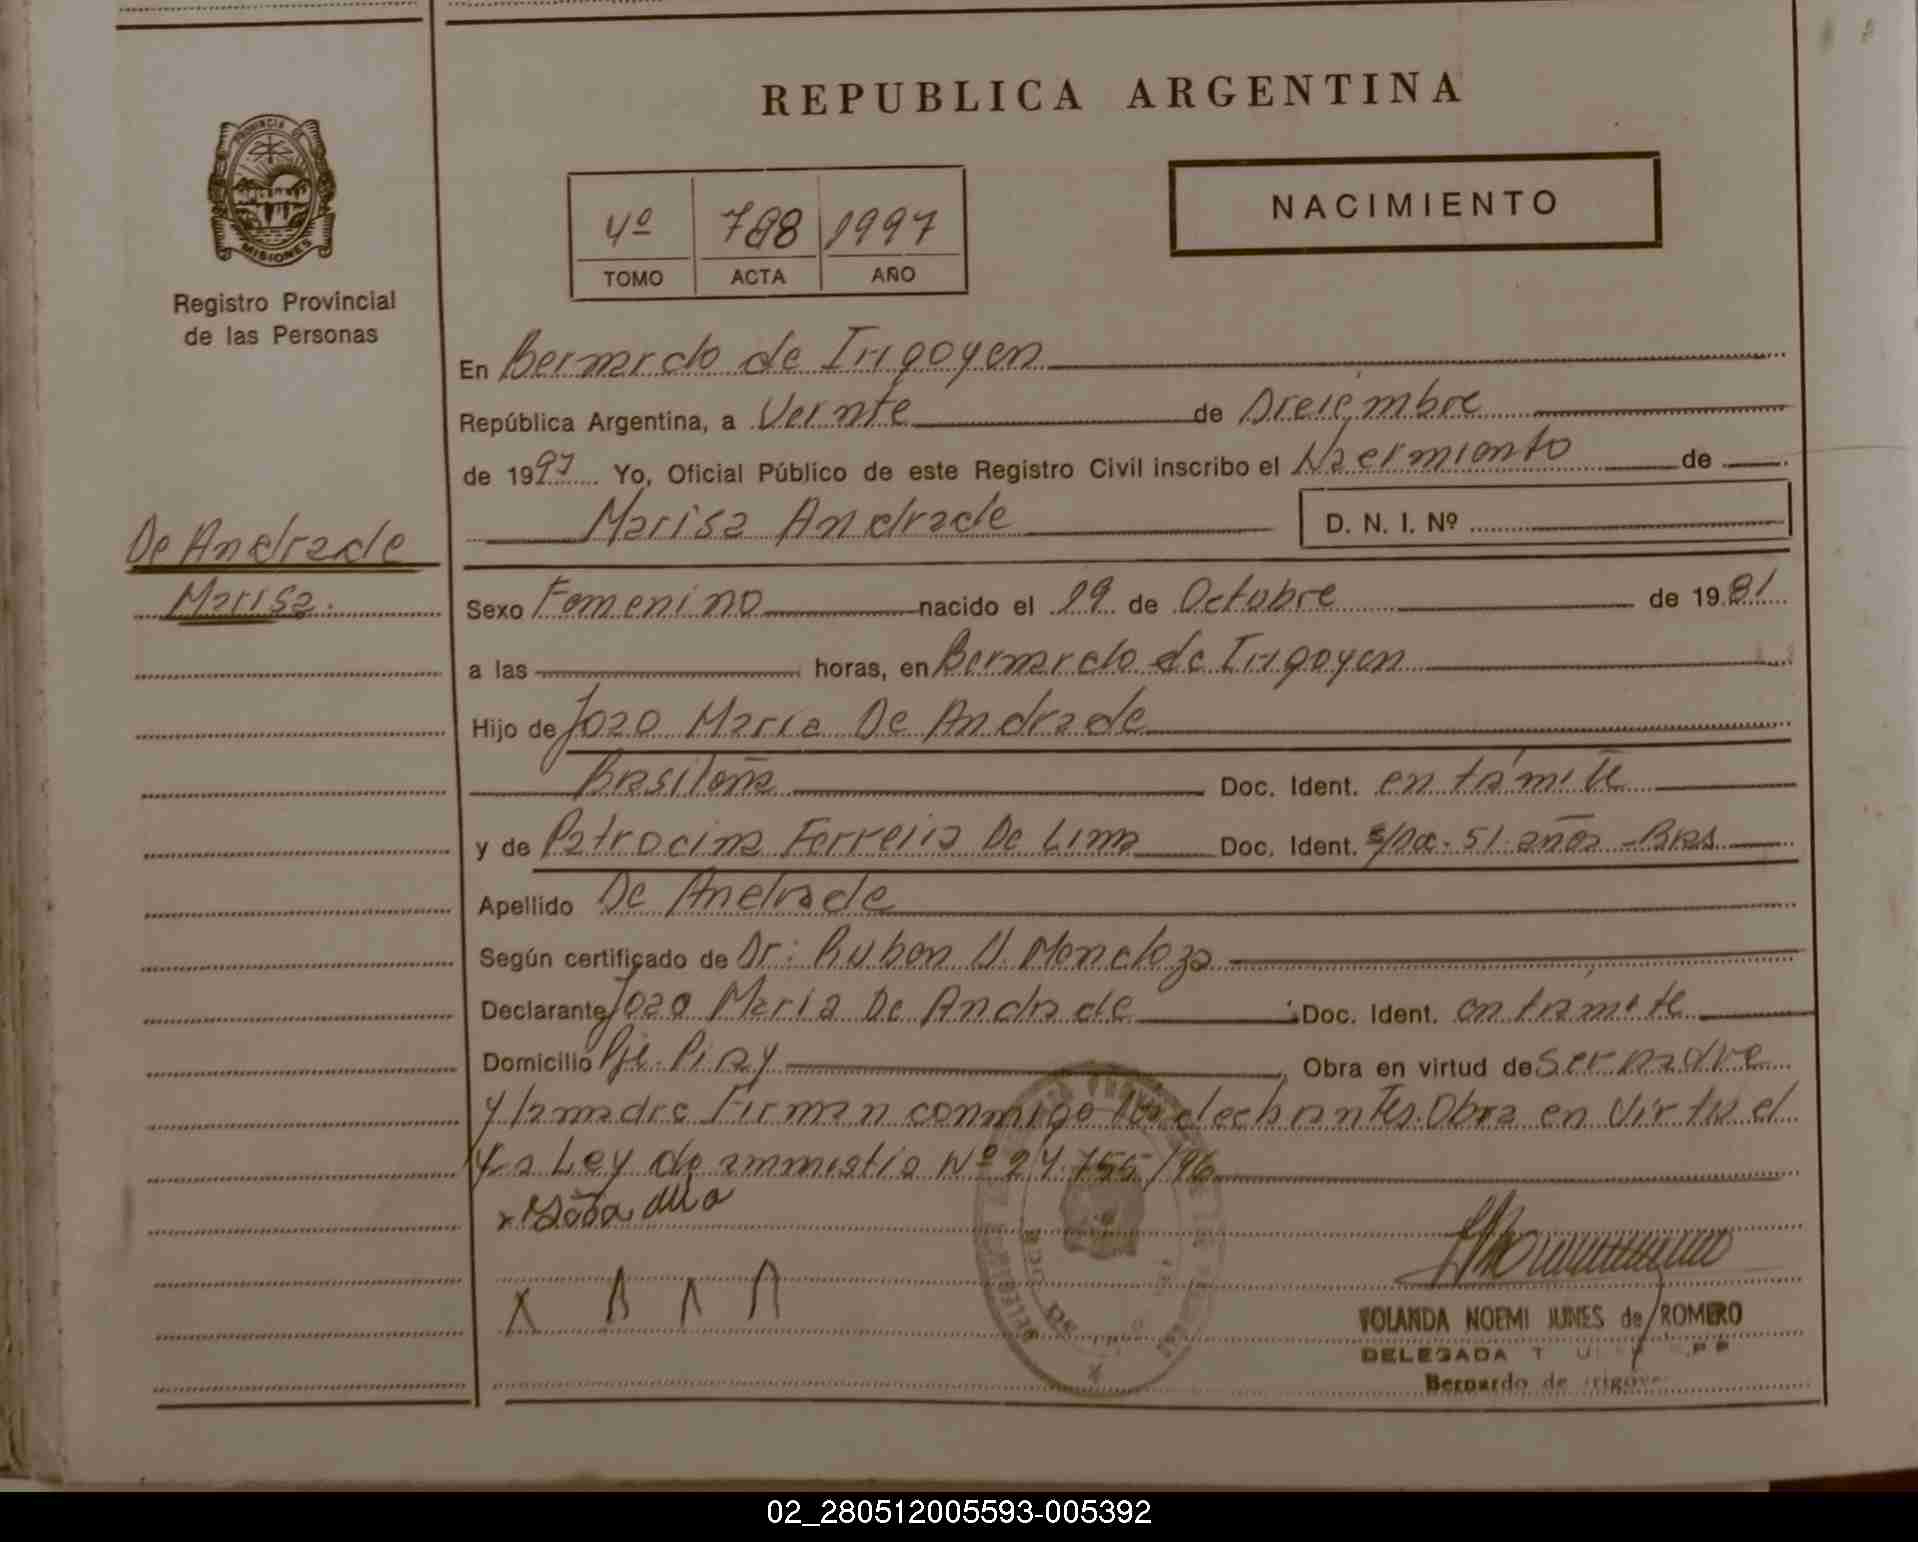 REPUBLICA ARGENTINA
PROVINCIA DE
MISIONES
Registro Provincial
de las Personas
4º 788 1997
TOMO ACTA AÑO
NACIMIENTO
En Bernardo de Irigoyen
República Argentina, a Veinte de Diciembre
de 1997 Yo, Oficial Público de este Registro Civil inscribo el Nacimiento de
Marisa Andrade D. N. I. Nº
De Andrade
Marisa.
Sexo Femenino nacido el 19 de Octubre de 1981
a las horas, en Bernardo de Irigoyen
Hijo de Joao Maria De Andrade
Brasileña Doc. Ident. en trámite
y de Patrocina Ferreira De Lima Doc. Ident. s/Doc. 51 años - Bras
Apellido De Andrade
Según certificado de Dr: Ruben U. Mendoza
Declarante Joao Maria De Andrade Doc. Ident. en trámite
Domicilio Pje. Piray Obra en virtud de Ser padre
y la madre Firman conmigo los declarantes. Obra en virtud
Ley de amnistia Nº 24.755/96
YOLANDA NOEMI JUNES de ROMERO
DELEGADA
Bernardo de
02_280512005593-005392